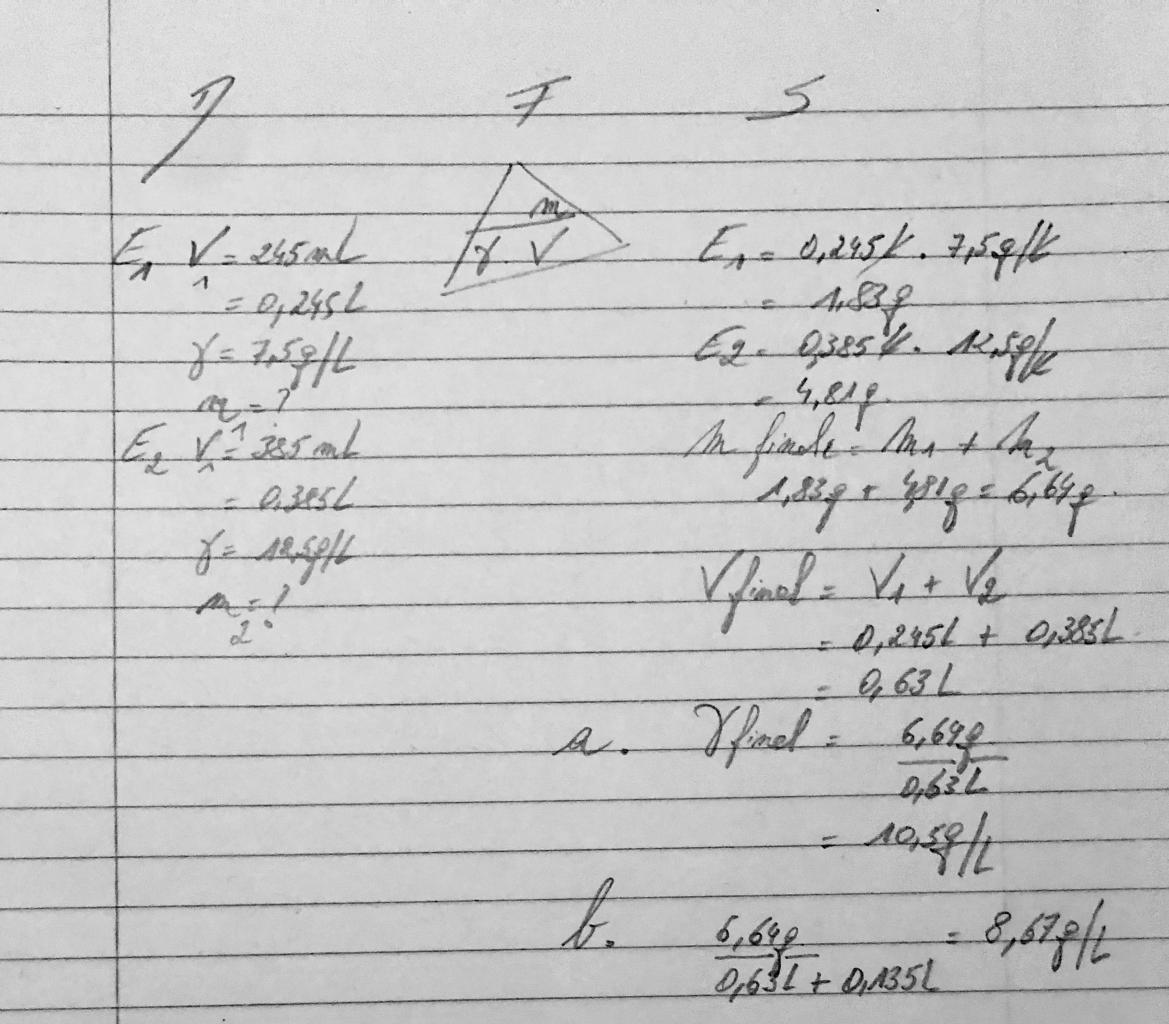 D F S
m
γ. V
E₁ V₁ = 245 mL
= 0,245L
γ = 7,5g/L
m₁ = ?
E₂ V₁ = 385 mL
= 0,385L
γ = 12,5g/L
m₂ = ?
E₁ = 0,245L . 7,5g/L
= 1,83g
E₂ = 0,385L . 12,5g/L
= 4,81g.
m finale = m₁ + m₂
1,83g + 4,81g = 6,64g.
V final = V₁ + V₂
= 0,245L + 0,385L.
= 0,63L
a. γ final = 6,64g
0,63L
= 10,5g/L
b. 6,64g = 8,67g/L
0,63L + 0,135L